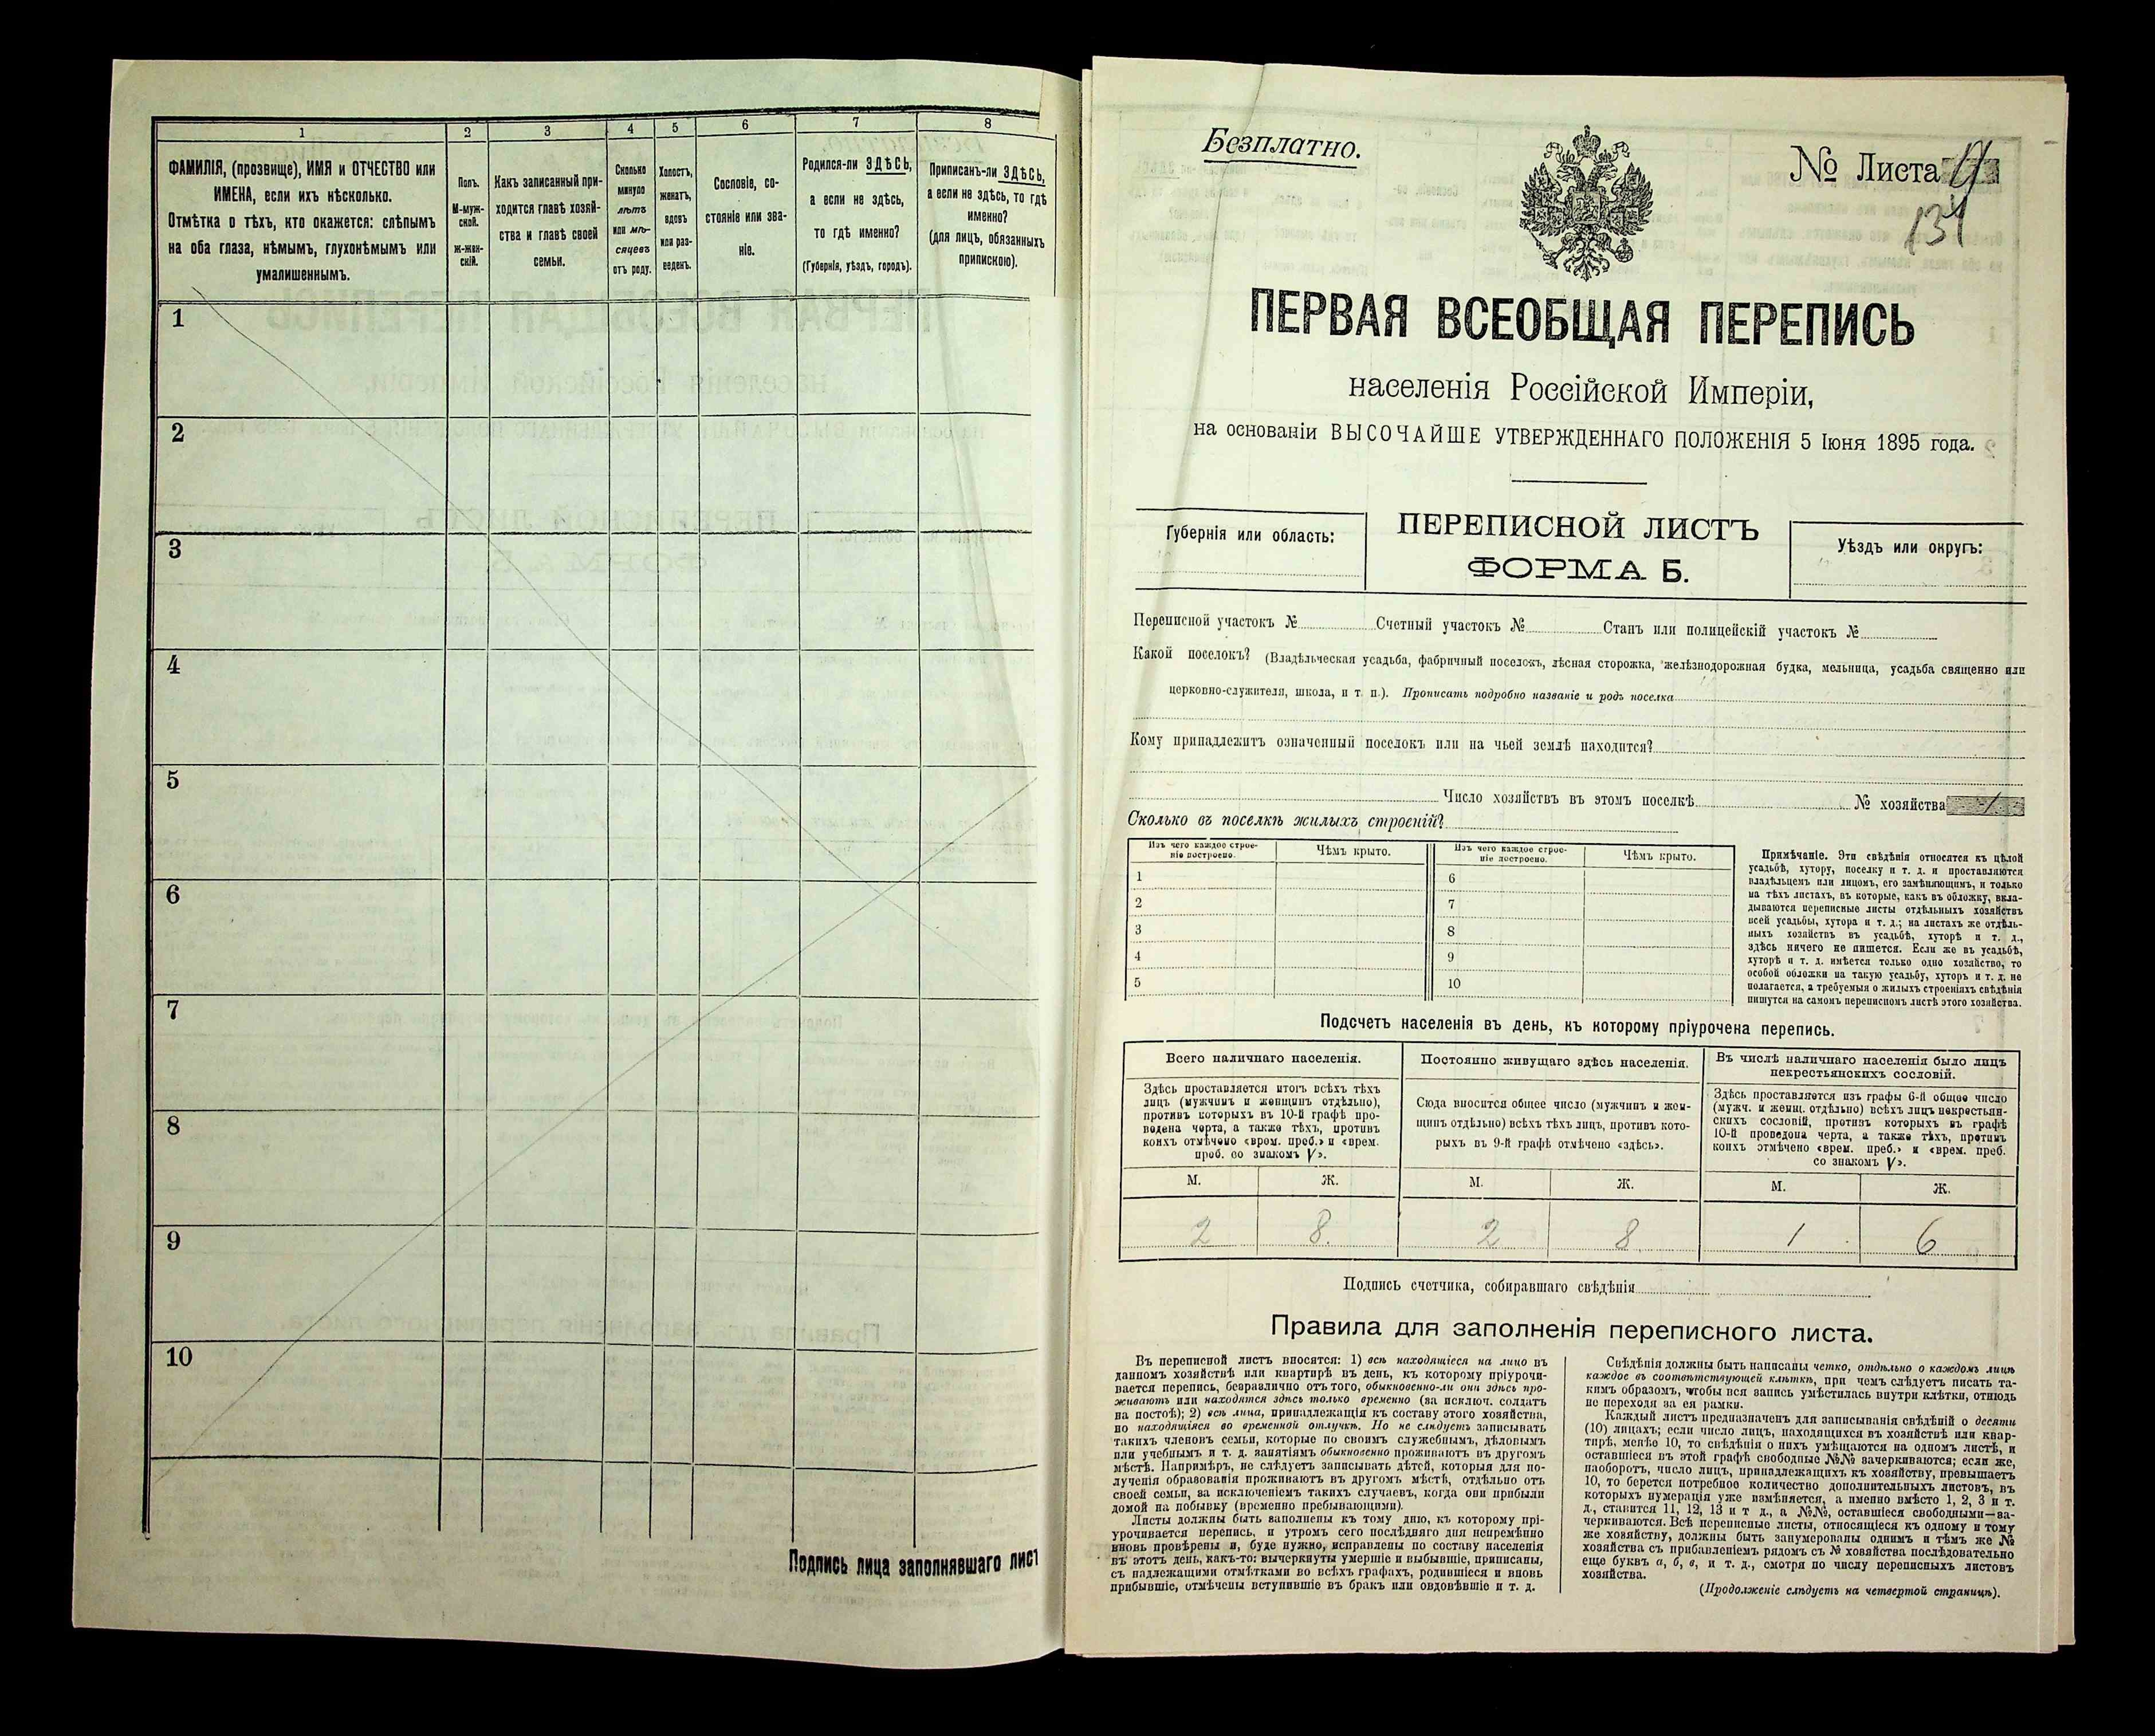 1 2 3 4 5 6 7 8
ФАМИЛІЯ, (прозвище), ИМЯ и ОТЧЕСТВО или
ИМЕНА, если ихъ нѣсколько.
Отмѣтка о тѣхъ, кто окажется: слѣпымъ
на оба глаза, нѣмымъ, глухонѣмымъ или
умалишеннымъ.
Полъ.
М-муж-
ской.
ж-жен-
скій.
Какъ записанный при-
ходится главѣ хозяй-
ства и главѣ своей
семьи.
Сколько
минуло
лѣтъ
или мѣ-
сяцевъ
отъ роду.
Холостъ,
женатъ,
вдовъ
или раз-
веденъ.
Сословіе, со-
стояніе или зва-
ніе.
Родился-ли ЗДѢСЬ,
а если не здѣсь,
то гдѣ именно?
(Губернія, уѣздъ, городъ).
Приписанъ-ли ЗДѢСЬ,
а если не здѣсь, то гдѣ
именно?
(для лицъ, обязанныхъ
припискою).
1
2
3
4
5
6
7
8
9
10
Подпись лица заполнявшаго лист
Безплатно.
№ Листа 17
134
ПЕРВАЯ ВСЕОБЩАЯ ПЕРЕПИСЬ
населенія Россійской Имперіи,
на основаніи ВЫСОЧАЙШЕ УТВЕРЖДЕННАГО ПОЛОЖЕНІЯ 5 Іюня 1895 года.
Губернія или область:
ПЕРЕПИСНОЙ ЛИСТЪ
ФОРМА Б.
Уѣздъ или округъ:
Переписной участокъ № Счетный участокъ № Станъ или полицейскій участокъ №
Какой поселокъ? (Владѣльческая усадьба, фабричный поселокъ, лѣсная сторожка, желѣзнодорожная будка, мельница, усадьба священно или
церковно-служителя, школа, и т. п.). Прописать подробно названіе и родъ поселка
Кому принадлежитъ означенный поселокъ или на чьей землѣ находится?
Число хозяйствъ въ этомъ поселкѣ № хозяйства 1
Сколько въ поселкѣ жилыхъ строеній?
Изъ чего каждое строе-
ніе построено.
Чѣмъ крыто.
Изъ чего каждое строе-
ніе построено.
Чѣмъ крыто.
1 6
2 7
3 8
4 9
5 10
Примѣчаніе. Эти свѣдѣнія относятся къ цѣлой
усадьбѣ, хутору, поселку и т. д. и проставляются
владѣльцемъ или лицомъ, его замѣняющимъ, и только
на тѣхъ листахъ, въ которые, какъ въ обложку, вкла-
дываются переписные листы отдѣльныхъ хозяйствъ
всей усадьбы, хутора и т. д.; на листахъ же отдѣль-
ныхъ хозяйствъ въ усадьбѣ, хуторѣ и т. д.,
здѣсь ничего не пишется. Если же въ усадьбѣ,
хуторѣ и т. д. имѣется только одно хозяйство, то
особой обложки на такую усадьбу, хуторъ и т. д. не
полагается, а требуемыя о жилыхъ строеніяхъ свѣдѣнія
пишутся на самомъ переписномъ листѣ этого хозяйства.
Подсчетъ населенія въ день, къ которому пріурочена перепись.
Всего наличнаго населенія.
Здѣсь проставляется итогъ всѣхъ тѣхъ
лицъ (мужчинъ и женщинъ отдѣльно),
противъ которыхъ въ 10-й графѣ про-
ведена черта, а также тѣхъ, противъ
коихъ отмѣчено «врем. преб.» и «врем.
преб. со знакомъ V».
Постоянно живущаго здѣсь населенія.
Сюда вносится общее число (мужчинъ и жен-
щинъ отдѣльно) всѣхъ тѣхъ лицъ, противъ кото-
рыхъ въ 9-й графѣ отмѣчено «здѣсь».
Въ числѣ наличнаго населенія было лицъ
некрестьянскихъ сословій.
Здѣсь проставляется изъ графы 6-й общее число
(мужч. и женщ. отдѣльно) всѣхъ лицъ некрестьян-
скихъ сословій, противъ которыхъ въ графѣ
10-й проведена черта, а также тѣхъ, противъ
коихъ отмѣчено «врем. преб.» и «врем. преб.
со знакомъ V».
М. Ж. М. Ж. М. Ж.
2 8. 2 8. 1 6
Подпись счетчика, собиравшаго свѣдѣнія
Правила для заполненія переписного листа.
Въ переписной листъ вносятся: 1) всѣ находящіеся на лицо въ
данномъ хозяйствѣ или квартирѣ въ день, къ которому пріурочи-
вается перепись, безразлично отъ того, обыкновенно-ли они здѣсь про-
живаютъ или находятся здѣсь только временно (за исключ. солдатъ
на постоѣ); 2) всѣ лица, принадлежащія къ составу этого хозяйства,
но находящіяся во временной отлучкѣ. Но не слѣдуетъ записывать
такихъ членовъ семьи, которые по своимъ служебнымъ, дѣловымъ
или учебнымъ и т. д. занятіямъ обыкновенно проживаютъ въ другомъ
мѣстѣ. Напримѣръ, не слѣдуетъ записывать дѣтей, которыя для по-
лученія образованія проживаютъ въ другомъ мѣстѣ, отдѣльно отъ
своей семьи, за исключеніемъ такихъ случаевъ, когда они прибыли
домой на побывку (временно пребывающими).
Листы должны быть заполнены къ тому дню, къ которому прі-
урочивается перепись, и утромъ сего послѣдняго дня непремѣнно
вновь провѣрены и, буде нужно, исправлены по составу населенія
въ этотъ день, какъ-то: вычеркнуты умершіе и выбывшіе, приписаны,
съ надлежащими отмѣтками во всѣхъ графахъ, родившіеся и вновь
прибывшіе, отмѣчены вступившіе въ бракъ или овдовѣвшіе и т. д.
Свѣдѣнія должны быть написаны четко, отдѣльно о каждомъ лицѣ
каждое въ соотвѣтствующей клѣткѣ, при чемъ слѣдуетъ писать та-
кимъ образомъ, чтобы вся запись умѣстилась внутри клѣтки, отнюдь
не переходя за ея рамки.
Каждый листъ предназначенъ для записыванія свѣдѣній о десяти
(10) лицахъ; если число лицъ, находящихся въ хозяйствѣ или квар-
тирѣ, менѣе 10, то свѣдѣнія о нихъ умѣщаются на одномъ листѣ, и
оставшіеся въ этой графѣ свободные №№ зачеркиваются; если же,
наоборотъ, число лицъ, принадлежащихъ къ хозяйству, превышаетъ
10, то берется потребное количество дополнительныхъ листовъ, въ
которыхъ нумерація уже измѣняется, а именно вмѣсто 1, 2, 3 и т.
д., ставится 11, 12, 13 и т д., а №№, оставшіеся свободными—за-
черкиваются. Всѣ переписные листы, относящіеся къ одному и тому
же хозяйству, должны быть занумерованы однимъ и тѣмъ же №
хозяйства съ прибавленіемъ рядомъ съ № хозяйства послѣдовательно
еще буквъ а, б, в, и т. д., смотря по числу переписныхъ листовъ
хозяйства.
(Продолженіе слѣдуетъ на четвертой страницѣ).